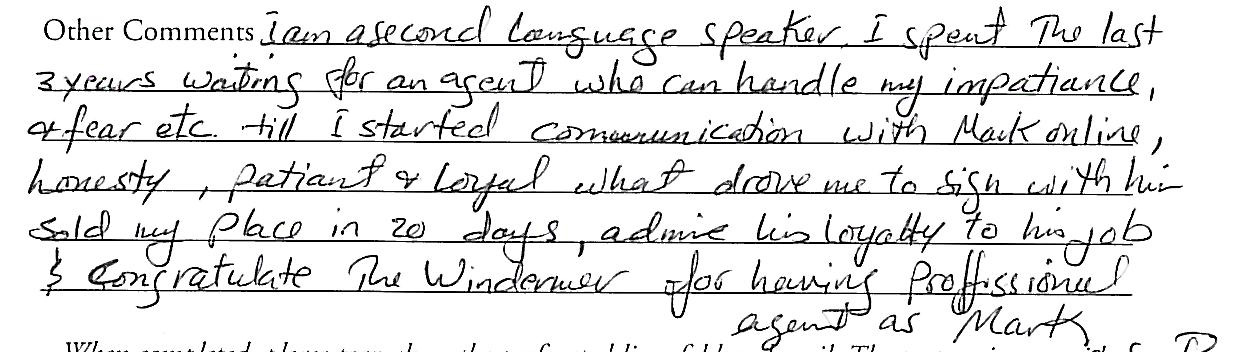 Other Comments I am a second language speaker. I spent The last
3 years waiting for an agent who can handle my impatiance,
& fear etc. till I started communication with Mark online,
honesty, patiant & loyal what drove me to sign with him
Sold my Place in 20 days, admire his loyalty to his job
& Congratulate The Windermer for having Proffissional
agent as Mark